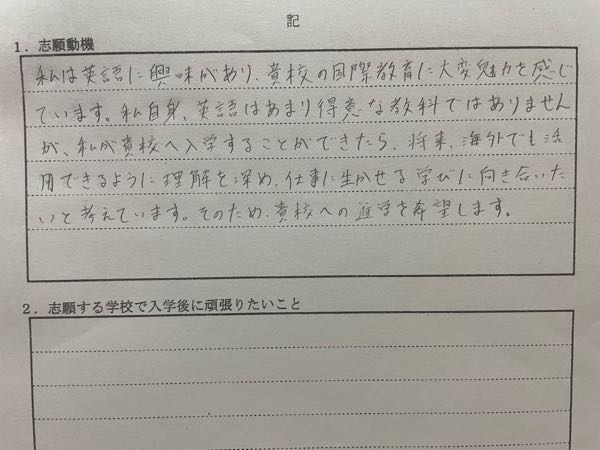 記
1．志願動機
私は英語に興味があり、貴校の国際教育に大変魅力を感じ
ています。私自身、英語はあまり得意な教科ではありません
が、私が貴校へ入学することができたら、将来、海外でも活
用できるように理解を深め、仕事に生かせる学びに向き合いた
いと考えています。そのため、貴校への進学を希望します。
2．志願する学校で入学後に頑張りたいこと